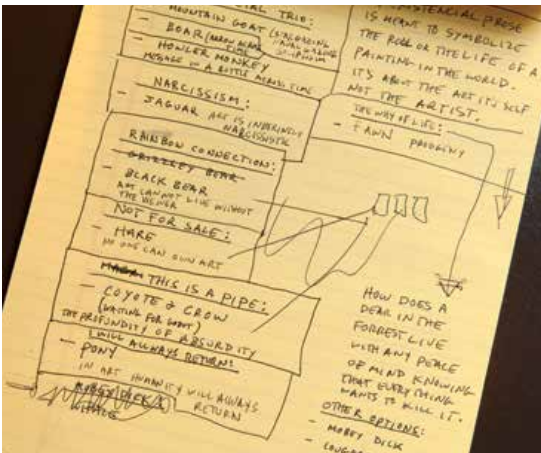 TRIO:
MOUNTAIN GOAT
- BOAR
- HOWLER MONKEY
MESSAGE IN A BOTTLE ACROSS TIME
NARCISSISM:
- JAGUAR ART IS INHERINTLY
NARCISSISTIC
RAINBOW CONNECTION:
GRIZZLEY BEAR
- BLACK BEAR
ART CANNOT LIVE WITHOUT
THE VIEWER
NOT FOR SALE:
- HARE
NO ONE CAN OWN ART
THIS IS A PIPE:
- COYOTE & CROW
(WAITING FOR GODOT)
THE PROFUNDITY OF ABSURDITY
I WILL ALLWAYS RETURN:
- PONY
IN ART HUMANITY WILL ALWAYS
RETURN
MOBEY DICK
WHALE
PROSE
IS MEANT TO SYMBOLIZE
THE ROLE OR THE LIFE OF A
PAINTING IN THE WORLD.
IT'S ABOUT THE ART IT'S SELF
NOT THE ARTIST.
THE WAY OF LIFE:
- FAWN
HOW DOES A
DEAR IN THE
FORREST LIVE
WITH ANY PEACE
OF MIND KNOWING
THAT EVERYTHING
WANTS TO KILL IT.
OTHER OPTIONS:
- MOBEY DICK
- COUGAR